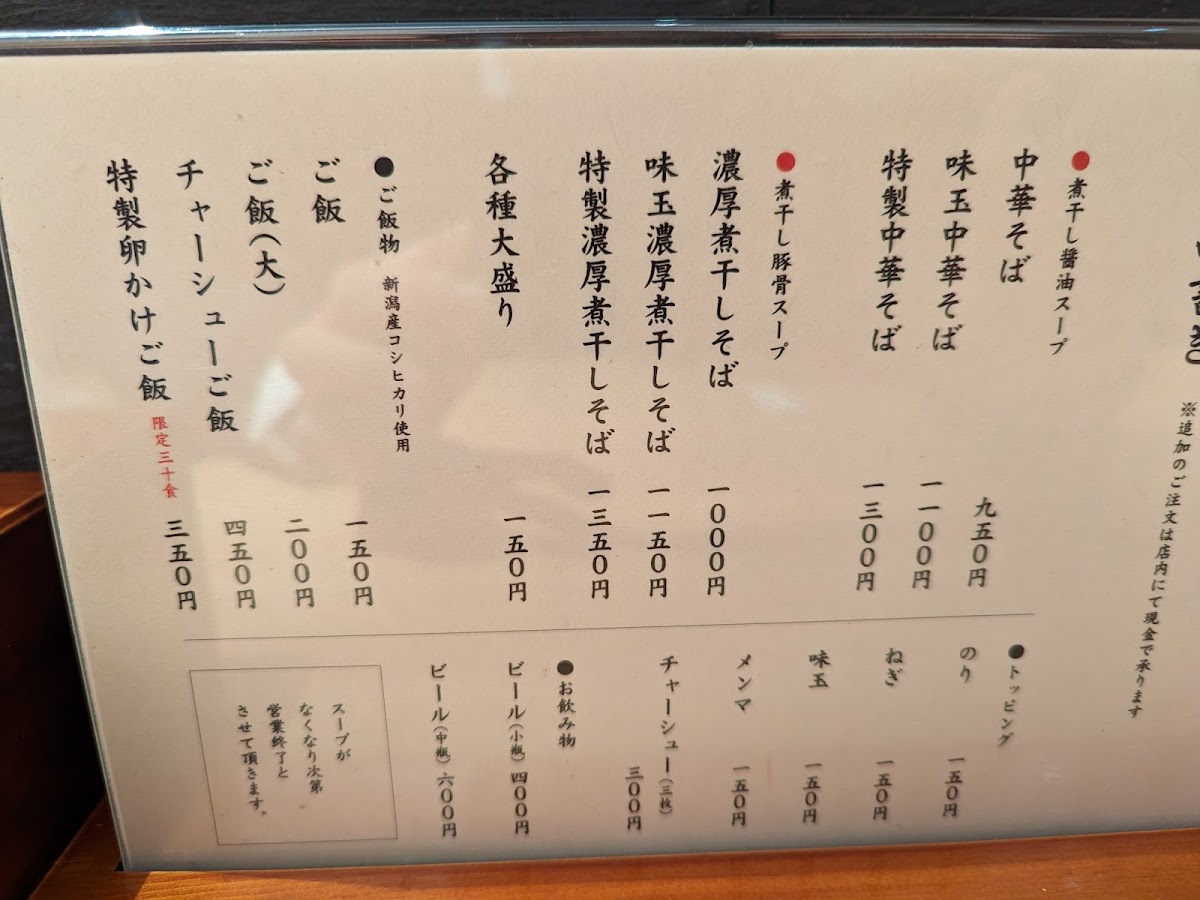 ※追加のご注文は店内にて現金で承ります
●煮干し醤油スープ
中華そば 九五〇円
味玉中華そば 一一〇〇円
特製中華そば 一三〇〇円
●煮干し豚骨スープ
濃厚煮干しそば 一〇〇〇円
味玉濃厚煮干しそば 一一五〇円
特製濃厚煮干しそば 一三五〇円
各種大盛り 一五〇円
●ご飯物 新潟産コシヒカリ使用
ご飯 一五〇円
ご飯(大) 二〇〇円
チャーシューご飯 四五〇円
特製卵かけご飯 限定三十食 三五〇円
●トッピング
のり 一五〇円
ねぎ 一五〇円
味玉 一五〇円
メンマ 一五〇円
チャーシュー(三枚) 三〇〇円
●お飲み物
ビール(小瓶) 四〇〇円
ビール(中瓶) 六〇〇円
スープが
なくなり次第
営業終了と
させて頂きます。